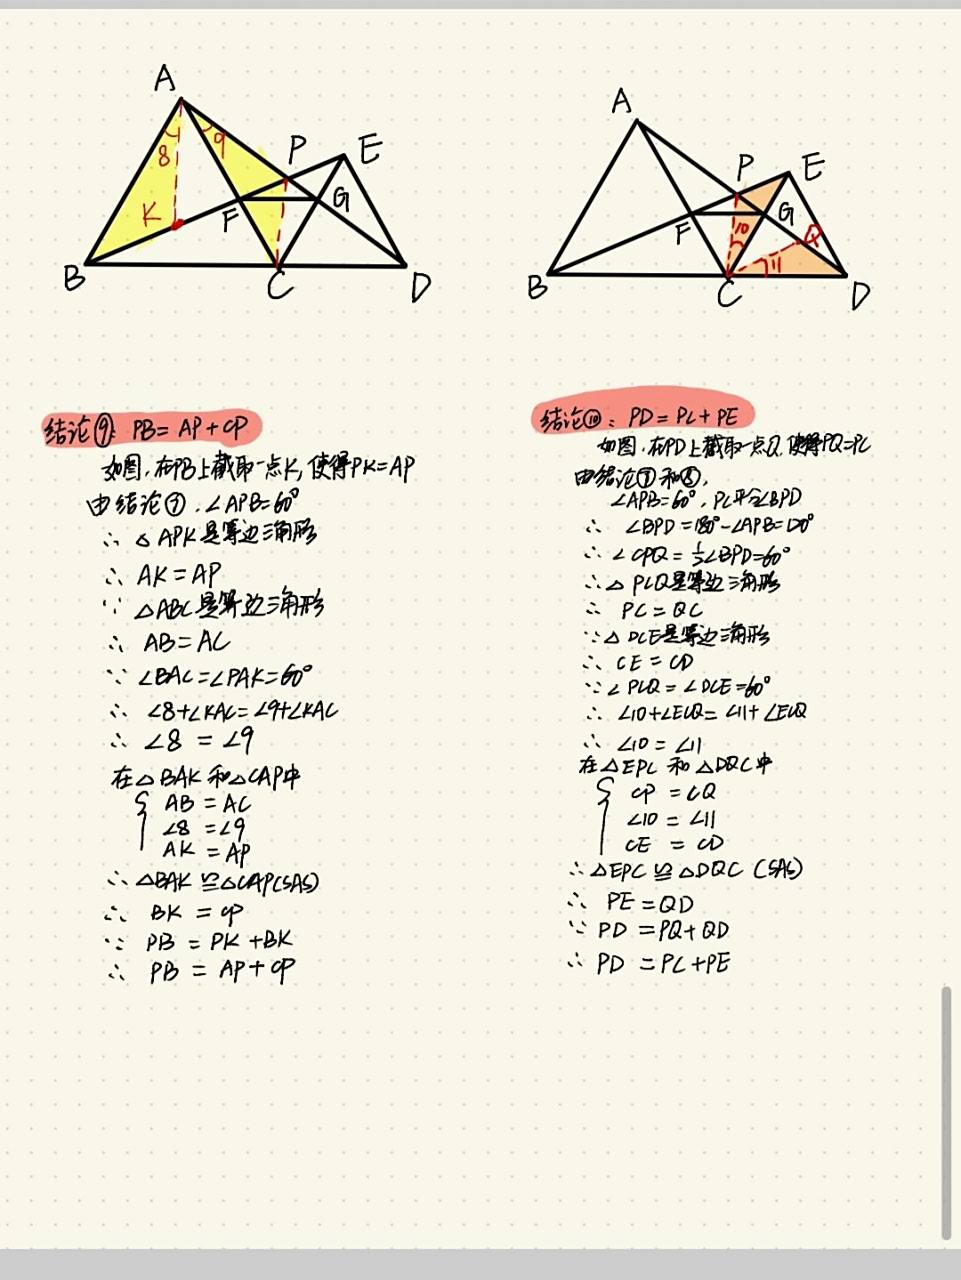 A
8
9
P
E
K
F
G
B
C
D
A
P
E
F
G
10
Q
11
B
C
D
结论⑨: PB = AP + CP
如图,在PB上截取一点K,使得PK=AP
由结论⑦,∠APB=60°
∴ △APK是等边三角形
∴ AK = AP
∵ △ABC是等边三角形
∴ AB = AC
∵ ∠BAC=∠PAK=60°
∴ ∠8+∠KAC=∠9+∠KAC
∴ ∠8 = ∠9
在△BAK 和△CAP中
AB = AC
∠8 = ∠9
AK = AP
∴ △BAK ≌ △CAP(SAS)
∴ BK = CP
∵ PB = PK + BK
∴ PB = AP + CP
结论⑩: PD = PC + PE
如图,在PD上截取一点Q,使得PQ=PC
由结论⑦和⑧,
∠APB=60°,PC平分∠BPD
∴ ∠BPD=180°-∠APB=120°
∴ ∠CPQ = ½∠BPD=60°
∴ △PCQ是等边三角形
∴ PC = QC
∵ △DCE是等边三角形
∴ CE = CD
∵ ∠PCQ = ∠DCE=60°
∴ ∠10+∠ECQ= ∠11+∠ECQ
∴ ∠10 = ∠11
在△EPC 和 △DQC中
CP = CQ
∠10 = ∠11
CE = CD
∴ △EPC ≌ △DQC (SAS)
∴ PE = QD
∵ PD = PQ + QD
∴ PD = PC + PE